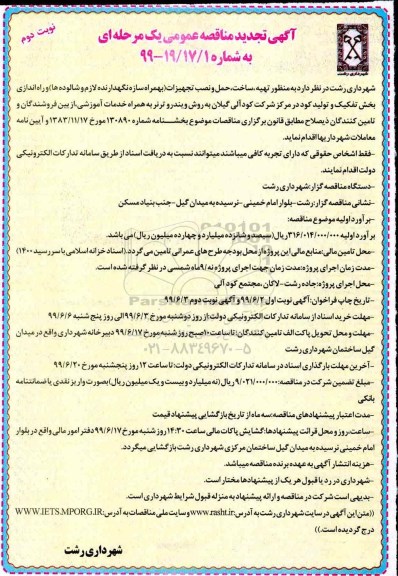 نوبت دوم
آگهی تجدید مناقصه عمومی یک مرحله ای
به شماره ۹۹-۱۹/۱۷/۱
شهرداری رشت
شهرداری رشت در نظر دارد به منظور تهیه، ساخت، حمل و نصب تجهیزات (بهمراه سازه نگهدارنده لازم و شالوده ها) و راه اندازی
بخش تفکیک و تولید کود در مرکز شرکت کود آلی گیلان به روش ویندرو ترنر به همراه خدمات آموزشی، از بین فروشندگان و
تامین کنندگان ذیصلاح مطابق قانون برگزاری مناقصات موضوع بخشنامه شماره ۱۳۰۸۹۰ مورخ ۱۳۸۳/۱۱/۱۷ و آیین نامه
معاملات شهرداریها اقدام نماید.
-فقط اشخاص حقوقی که دارای تجربه کافی میباشند میتوانند نسبت به دریافت اسناد از طریق سامانه تدارکات الکترونیکی
دولت اقدام نمایند.
-دستگاه مناقصه گزار: شهرداری رشت
-نشانی مناقصه گزار: رشت- بلوار امام خمینی - نرسیده به میدان گیل- جنب بنیاد مسکن
-برآورد اولیه موضوع مناقصه:
برآورد اولیه ۳۱۶/۰۱۴/۰۰۰/۰۰۰ ریال (سیصد و شانزده میلیارد و چهارده میلیون ریال) می باشد.
-محل تامین مالی: منابع مالی این پروژه از محل بودجه طرح های عمرانی تامین می گردد. (اسناد خزانه اسلامی با سررسید ۱۴۰۰)
-مدت زمان اجرای پروژه: مدت زمان جهت اجرای پروژه نه/۹ماه شمسی در نظر گرفته شده است.
-محل اجرای پروژه: جاده رشت- لاکان، مجتمع کود آلی
-تاریخ چاپ فراخوان: آگهی نوبت اول ۹۹/۶/۲ و آگهی نوبت دوم ۹۹/۶/۳
-مهلت خرید اسناد از سامانه تدارکات الکترونیکی دولت: از روز دوشنبه مورخ ۹۹/۶/۳ الی روز پنج شنبه ۹۹/۶/۶
-مهلت و محل تحویل پاکت الف تامین کنندگان: تا ساعت ۱۰ صبح روز شنبه مورخ ۹۹/۶/۱۷ دبیرخانه شهرداری واقع در میدان
گیل ساختمان شهرداری رشت
-آخرین مهلت بارگذاری اسناد در سامانه تدارکات الکترونیکی دولت: تا ساعت ۱۲ روز پنجشنبه مورخ ۹۹/۶/۲۰
-مبلغ تضمین شرکت در مناقصه: ۹/۰۲۱/۰۰۰/۰۰۰ ریال (نه میلیارد و بیست و یک میلیون ریال) بصورت واریز نقدی یا ضمانتنامه
بانکی
-مدت اعتبار پیشنهادهای مناقصه: سه ماه از تاریخ بازگشایی پیشنهاد قیمت
-ساعت، روز و محل قرائت پیشنهادها: گشایش پاکات مالی ساعت ۱۴:۳۰ روز شنبه مورخ ۹۹/۶/۱۷ دفتر امور مالی واقع در بلوار
امام خمینی نرسیده به میدان گیل ساختمان مرکزی شهرداری رشت بازگشایی میگردد.
-هزینه انتشار آگهی به عهده برنده مناقصه میباشد.
-شهرداری در رد یا قبول هر یک از پیشنهادها مختار است.
-بدیهی است شرکت در مناقصه و ارائه پیشنهاد به منزله قبول شرایط شهرداری است.
((متن این آگهی در سایت شهرداری رشت به آدرس: www.rasht.ir و سایت ملی مناقصات به آدرس: WWW.IETS.MPORG.IR
درج گردیده است.))
شهرداری رشت
۰۲۱-۸۸۳۴۹۶۷۰-۵